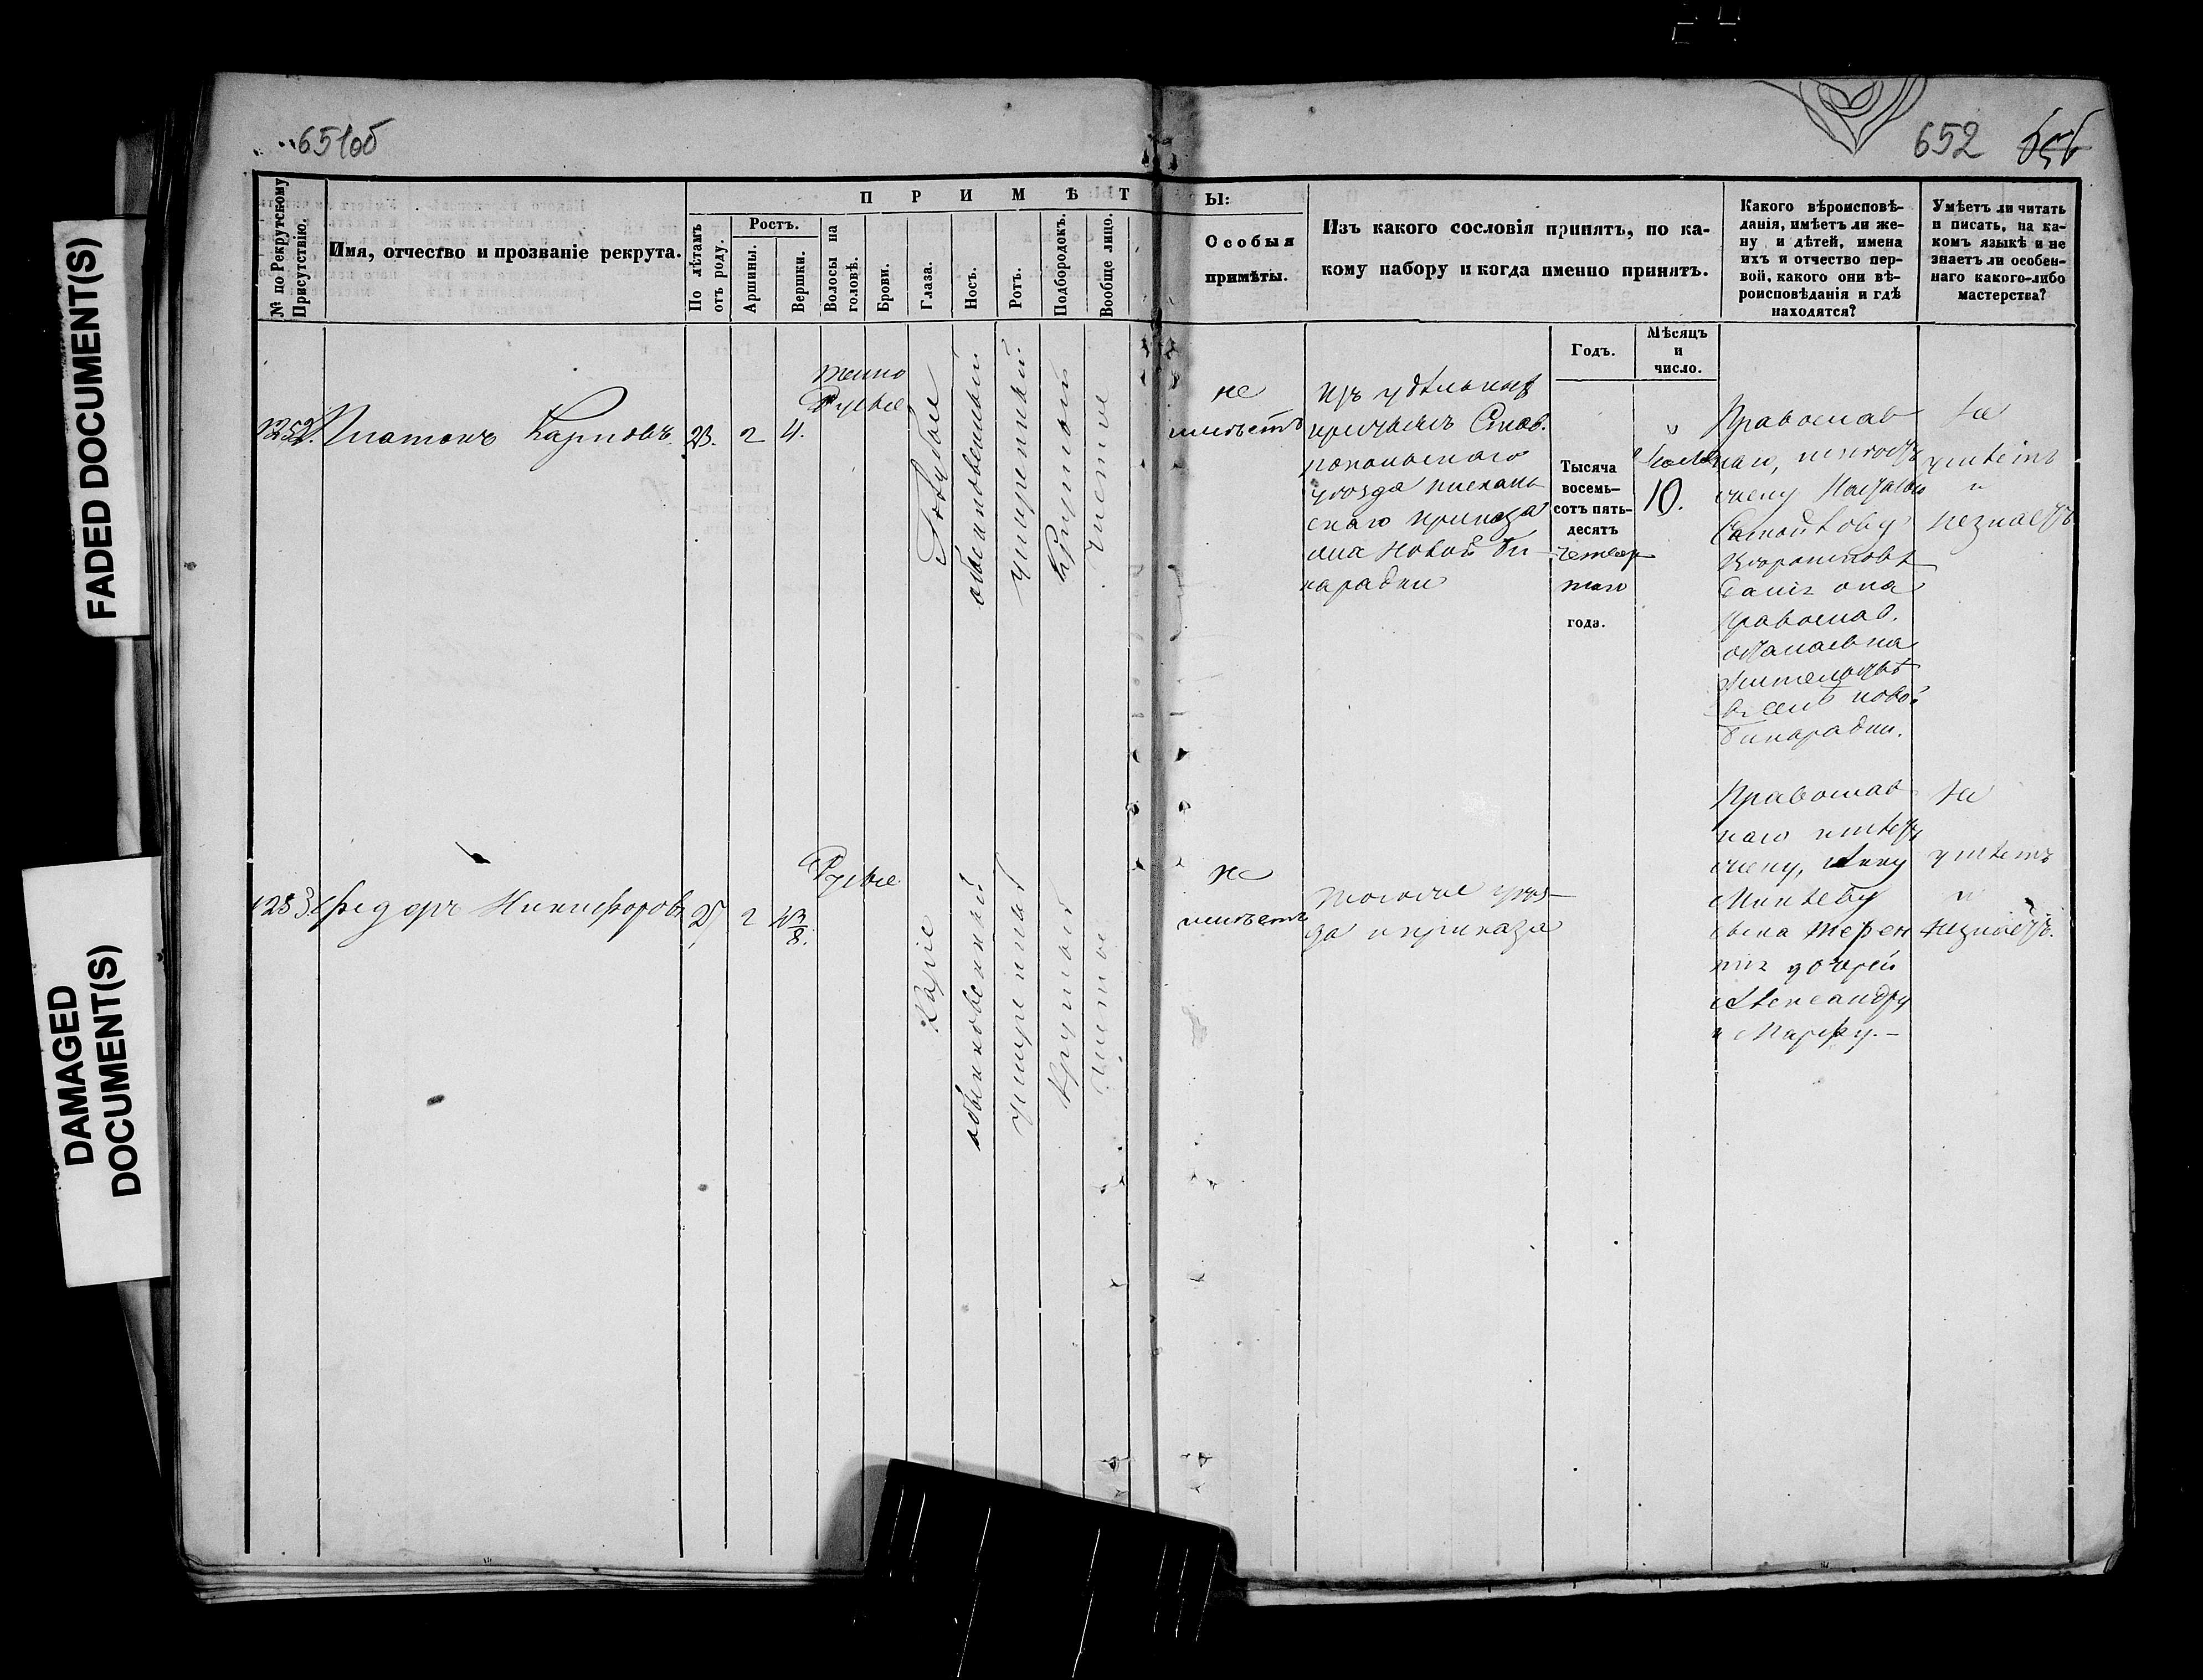 651об
652
FADED DOCUMENT(S)
DAMAGED
DOCUMENT(S)
№ по Рекрутскому
Присутствію.
Имя, отчество и прозваніе рекрута.
ПРИМѢТ
Ы:
По лѣтамъ
отъ роду.
Ростъ.
Аршины.
Вершки.
Волосы на
головѣ.
Брови.
Глаза.
Носъ.
Ротъ.
Подбородокъ.
Вообще лицо.
Особыя
примѣты.
Изъ какого сословія принятъ, по ка-
кому набору и когда именно принятъ.
Какого вѣроисповѣ-
данія, имѣетъ ли же-
ну и дѣтей, имена
ихъ и отчество пер-
вой, какого они вѣ-
роисповѣданія и гдѣ
находятся?
Умѣетъ ли читать
и писать, на ка-
комъ языкѣ и не
знаетъ ли особен-
наго какого-либо
мастерства?
Годъ.
Мѣсяцъ
и
число.
1252.
Платонъ Карповъ.
23.
2
4.
темно
Русые
Голубые
обыкновенный
умѣренный
Круглый
Чистое
не
имѣетъ
Изъ удѣльныхъ
крестьянъ Став.
ропольскаго
уѣзда
скаго приказа
села Новой Би-
нарадки
Тысяча
восемь-
сотъ пять-
десятъ
четвер
таго
года.
10.
Православ
наго, имѣетъ
жену Наталью
Самойлову
вѣроисповѣ
данія она
православ.
осталась на
жительствѣ
въ селѣ Новой
Бинарадки.
Не
умѣетъ
и
незнаетъ
1253.
Федоръ Никифоровъ
25
2
4 3/8.
Русые
Каріе
обыкновенный
умѣренный
Круглый
Чистое
не
имѣетъ
Тогоже уѣз-
да и приказа
Православ
наго имѣетъ
жену, Анну
Михѣеву
сына Терен
тія дочерей
Александру
и Марфу.-
Не
умѣетъ
и
незнаетъ.